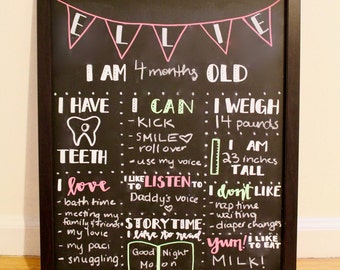 ELLIE
I AM 4 months OLD
I HAVE
TEETH
I CAN
- KICK
- SMILE
- roll over
- use my voice
I WEIGH
14 pounds
I AM
23 inches
TALL
I love
- bath time
- meeting my
family & friends
- my lovie
- my paci
- snuggling
I LIKE TO LISTEN TO
Daddy's voice
STORY TIME
I like to read
Good Night
Moon
I don't LIKE
- nap time
- waiting
- diaper changes
yum! I LIKE TO EAT
MILK!